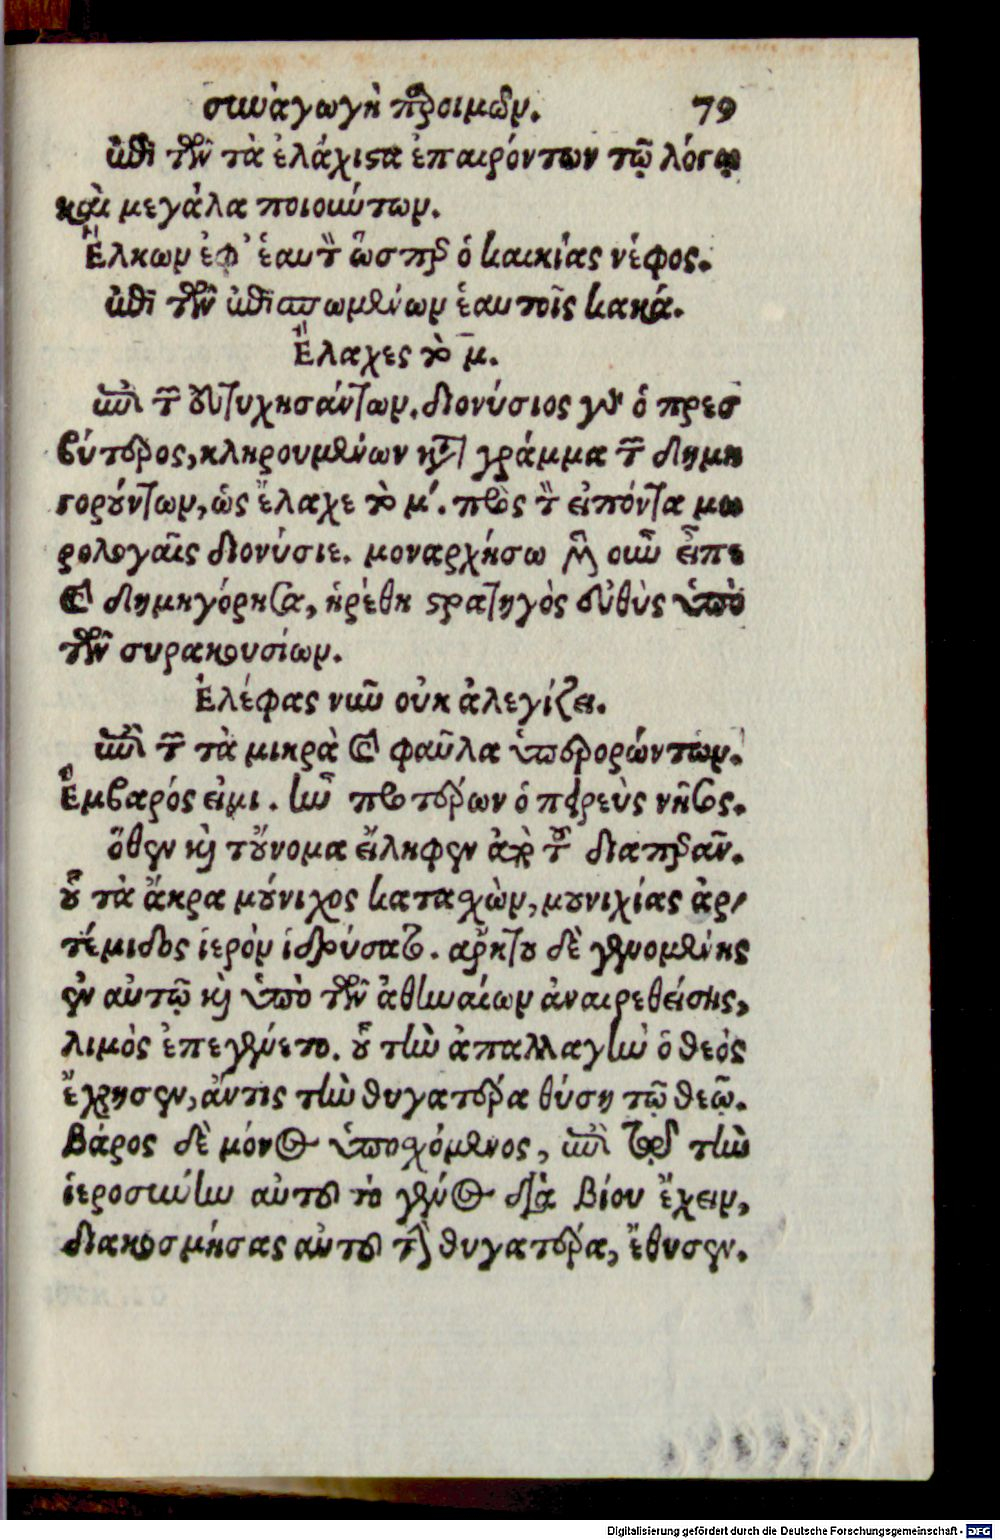 συναγωγὴ παροιμιῶν. 79
ἐπὶ τῶν τὰ ἐλάχιστα ἐπαιρόντων τῷ λόγῳ
καὶ μεγάλα ποιούντων.
Ἕλκων ἐφ' ἑαυτὸν ὥσπερ ὁ καικίας νέφος.
ἐπὶ τῶν ἐπισπωμένων ἑαυτοῖς κακά.
Ἔλαχες τὸ μ.
ἐπὶ τῶν εὐτυχησάντων. Διονύσιος γὰρ ὁ πρεσ
βύτερος, κληρουμένων κατὰ γράμμα τῶν δημη
γορούντων, ὡς ἔλαχε τὸ μ. πρὸς τὸν εἰπόντα μω
ρολογεῖς Διονύσιε. μοναρχήσω μὲν οὖν εἶπε
καὶ δημηγόρησας, ἡρέθη στρατηγὸς εὐθὺς ὑπὸ
τῶν συρακουσίων.
Ἐλέφας νῦν οὐκ ἀλεγίζει.
ἐπὶ τῶν τὰ μικρὰ καὶ φαῦλα ὑπερορώντων.
Ἔμβαρός εἰμι. ἦν πρότερον ὁ πειραιεὺς νῆσος.
ὅθεν καὶ τοὔνομα εἴληφεν ἀπὸ τοῦ διαπερᾶν.
οὗ τὰ ἄκρα μούνιχος κατασχὼν, μουνιχίας ἀρ-
τέμιδος ἱερὸν ἱδρύσατο. ἄρκτου δὲ γενομένης
ἐν αὐτῷ καὶ ὑπὸ τῶν ἀθηναίων ἀναιρεθείσης,
λιμὸς ἐπεγένετο. οὗ τὴν ἀπαλλαγὴν ὁ θεὸς
ἔχρησεν, ἄν τις τὴν θυγατέρα θύσῃ τῷ θεῷ.
Βάρος δὲ μόνος ὑποσχόμενος, ἐπὶ τῷ τὴν
ἱεροσύνην αὐτοῦ τὸ γένος διὰ βίου ἔχειν,
διακοσμήσας αὐτοῦ τὴν θυγατέρα, ἔθυσεν.
Digitalisierung gefördert durch die Deutsche Forschungsgemeinschaft - DFG